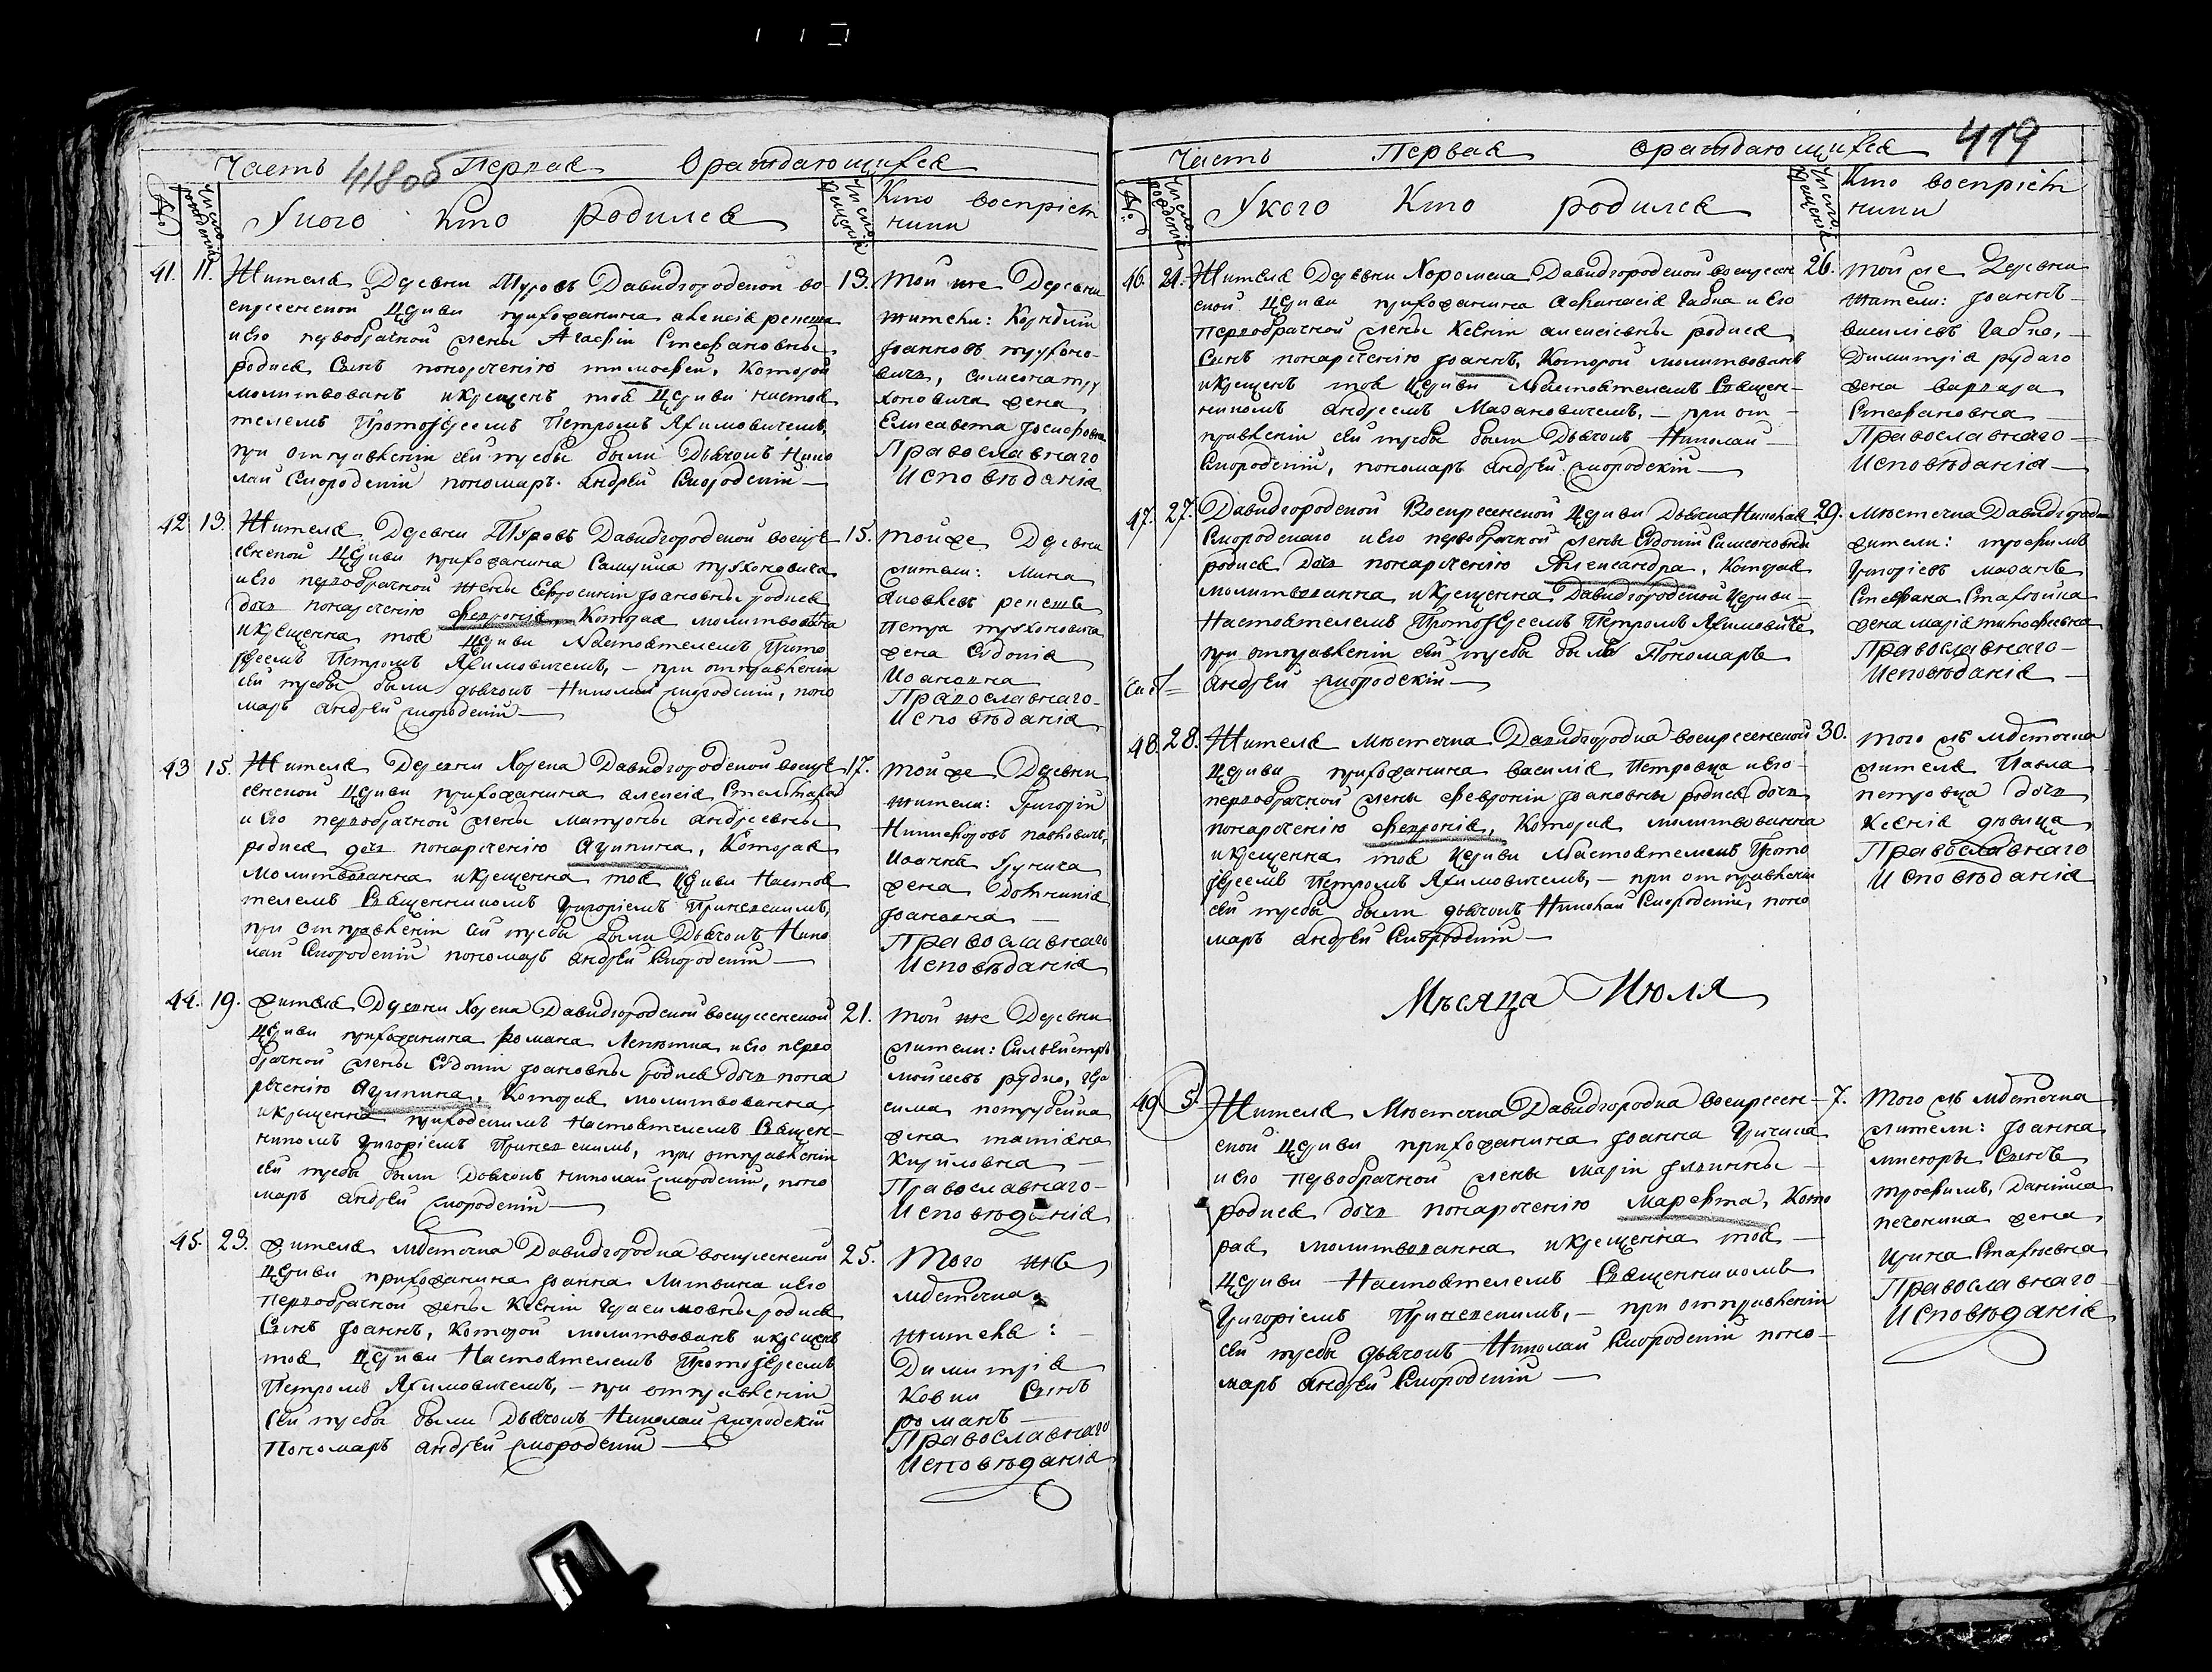 Часть Первая Ораждающихся
418 об
№
Число рождения
У кого кто родился
Число крещения
Кто воспріем
ники
41. 11. Жителя Деревни Туровъ Давидгородской во-
скресенской Церкви прихожанина алексія репеша
и Его первобрачной жены Агафіи Стефановны
родися Сынъ понареченію тимофей, Которой
молитвованъ икрещенъ тоя Церкви настоя
телемъ Протоіереемъ Петромъ Якимовичемъ,
при отправленіи сей требы были Дьячокъ Нико
лай Смородскій пономарь Андрей Смородскій
13. Той же Деревни
жители:
Іоанновъ трухоно-
вичъ, симеона тру
хоновича жена
Елисавета Іосифовна
Православнаго
Исповѣданія
42. 13. Жителя Деревни Туровъ Давидгородской воскре
сенской Церкви прихожанина Самуила трухоновича
и Его первобрачной жены Евфросиніи Іоановны родися
дочь понареченію Феvронія, Которая молитвована
икрещенна тоя Церкви Настоятелемъ Прото
іереемъ Петромъ Якимовичемъ, - при отправленіи
сей требы были дьячокъ Николай Смородскій, поно
марь андрей Смородскій
15. Той же Деревни
жители: Мина
Яковлевъ репешъ
Петра трухоновича
жена Евдокія
Иоановна
Православнаго
Исповѣданія
43 15. Жителя Деревни Хорска Давидгородской воскре
сенской Церкви прихожанина алексія
и Его первобрачной жены матроны андреевны
родися дочь понареченію Акулина, Которая
Молитвованна икрещенна тоя Церкви Настоя
телемъ Священникомъ Григоріемъ
при отправленіи сей требы были Дьячокъ Нико
лай Смородскій пономарь андрей Смородскій
17. Той же Деревни
жители: Григорій
Никифоровъ павловичъ,
Иоанна
жена Домникія
Іоановна
Православнаго
Исповѣданія
44. 19. Жителя Деревни Хорска Давидгородской воскресенской
Церкви прихожанина Романа и Его перво
брачной жены Евдокіи Іоановны родися дочь пона
реченію Акулина, Которая молитвованна
икрещенна приходскимъ Настоятелемъ Священ-
никомъ Григоріемъ при отправленіи
сей требы были Дьячокъ николай Смородскій, поно
марь андрей Смородскій
21. Той же Деревни
жители: Сильвестръ
моисеевъ рудко, гера
сима
жена татіана
Кириловна
Православнаго
Исповѣданія
45. 23. Жителя мѣстечка Давидгородка воскресенской
Церкви прихожанина Іоанна Литвина и Его
Первобрачной жены Ксеніи герасимовны родися
Сынъ Іоаннъ, Которой молитвованъ икрещенъ
тоя Церкви Настоятелемъ Протоіереемъ
Петромъ Якимовичемъ, - при отправленіи
Сей требы были Дьячокъ Николай Смородскій
Пономарь андрей Смородскій
25. Того же
мѣстечка
жителя:
Димитрія
Сынъ
романъ
Православнаго
Исповѣданія
Часть Первая Ораждающихся
419
№
Число рожденія
У кого Кто родился
Число крещенія
Кто воспріем
ники
46. 24. Жителя Деревни Хоромска Давидгородской воскресен
ской Церкви прихожанина Афанасія Габца и Его
первобрачной жены Ксеніи алексіевны родися
Сынъ понареченію Іоаннъ, Которой молитвованъ
икрещенъ тоя Церкви Настоятелемъ Священ-
никомъ Андреемъ Мазановичемъ, - при от-
правленіи сей требы были Дьячокъ Николай
Смородскій, пономарь андрей Смородскій
26. той же Деревни
жители: Іоаннъ
василіевъ
Димитрія рудаго
жена варвара
Стефановна
Православнаго
Исповѣданія
47. 27. Давидгородской Воскресенской Церкви Дьячка Николая
Смородскаго и Его первобрачной жены Евдокіи Симеоновны
родися Дочь понареченію Александра, Которая
молитвованна икрещенна Давидгородской Церкви
Настоятелемъ Протоіереемъ Петромъ Якимовиче
при отправленіи сей требы былъ Пономарь
Андрей Смородскій
29. Мѣстечка Давидгородка
жители: трофимъ
Григоріевъ мазанъ
Стефана
жена марія тимофеевна
Православнаго
Исповѣданія
48. 28. Жителя Мѣстечка Давидгородка воскресенской
Церкви прихожанина василія Петровца и Его
первобрачной жены февроніи Іоановны родися дочь
понареченію Феvронія, Которая молитвованна
икрещенна тоя Церкви Настоятелемъ Прото
іереемъ Петромъ Якимовичемъ, - при отправленіи
сей требы были дьячокъ Николай Смородскій, поно
марь андрей Смородскій
30. Того жъ мѣстечка
жителя Павла
петровца дочь
Ксенія дѣвица
Православнаго
Исповѣданія
Мѣсяца Июля
49 5. Жителя Мѣстечка Давидгородка воскресен-
ской Церкви прихожанина Іоанна
и Его первобрачной жены маріи
родися дочь понареченію Марфа, Кото
рая молитвованна икрещенна тоя
Церкви Настоятелемъ Священникомъ
Григоріемъ - при отправленіи
сей требы дьячокъ Николай Смородскій поно-
марь Андрей Смородскій
7. Того жъ мѣстечка
жители: Іоанна
Сынъ
трофимъ, Даніила
жена
Православнаго
Исповѣданія